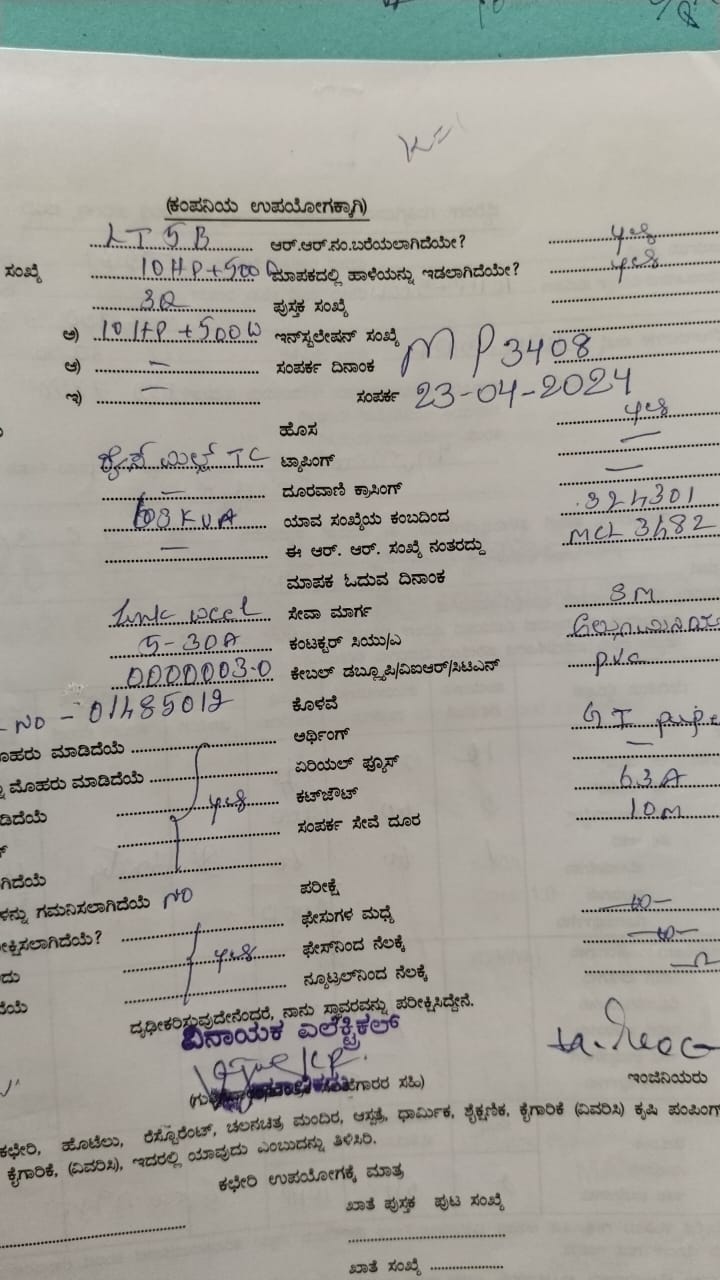 K=
(ಕಂಪನಿಯ ಉಪಯೋಗಕ್ಕಾಗಿ)
LT 5 B ಆರ್.ಆರ್.ನಂ.ಬರೆಯಲಾಗಿದೆಯೇ? yes
ಸಂಖ್ಯೆ 10 HP + 500 ಮಾಪಕದಲ್ಲಿ ಹಾಳೆಯನ್ನು ಇಡಲಾಗಿದೆಯೇ? yes
ಪುಸ್ತಕ ಸಂಖ್ಯೆ
ಅ) 10 HP + 500 W ಇನ್‌ಸ್ಟಲೇಷನ್ ಸಂಖ್ಯೆ MP3408
ಆ) — ಸಂಪರ್ಕ ದಿನಾಂಕ
ಇ) — ಸಂಪರ್ಕ 23-04-2024
ಹೊಸ yes
ರೈಸ್ ಮಿಲ್ಲ್ TC ಟ್ಯಾಪಿಂಗ್ —
— ದೂರವಾಣಿ ಕ್ರಾಸಿಂಗ್ —
63 KVA ಯಾವ ಸಂಖ್ಯೆಯ ಕಂಬದಿಂದ 324301
— ಈ ಆರ್. ಆರ್. ಸಂಖ್ಯೆ ನಂತರದ್ದು MCL 3482
ಮಾಪಕ ಓದುವ ದಿನಾಂಕ
Link well ಸೇವಾ ಮಾರ್ಗ SM
5-30A ಕಂಟಕ್ಟರ್ ಸಿಯು/ಎ
0000003.0 ಕೇಬಲ್ ಡಬ್ಲ್ಯೂಪಿ/ವಿಐಆರ್/ಸಿಟಿಎನ್ PVC
NO - 01485012 ಕೊಳವೆ
ಮೊಹರು ಮಾಡಿದೆಯೆ ಅರ್ಥಿಂಗ್ GI pipe
ಮೊಹರು ಮಾಡಿದೆಯೆ ಏರಿಯಲ್ ಫ್ಯೂಸ್ —
ಡಿದೆಯೆ yes ಕಟ್‌ಜೌಟ್ 63A
ಸಂಪರ್ಕ ಸೇವೆ ದೂರ 10M
ಗಿದೆಯೆ
ಗಮನಿಸಲಾಗಿದೆಯೆ NO ಪರೀಕ್ಷೆ
ಕ್ಷಿಸಲಾಗಿದೆಯೆ? ಫೇಸುಗಳ ಮಧ್ಯೆ
ದು yes ಫೇಸ್‌ನಿಂದ ನೆಲಕ್ಕೆ
ದೆಯೆ ನ್ಯೂಟ್ರಲ್‌ನಿಂದ ನೆಲಕ್ಕೆ
ದೃಢೀಕರಿಸುವುದೇನೆಂದರೆ, ನಾನು ಸ್ಥಾವರವನ್ನು ಪರೀಕ್ಷಿಸಿದ್ದೇನೆ.
ವಿನಾಯಕ ಎಲೆಕ್ಟ್ರಿಕಲ್
ಸಹಿ) ಇಂಜಿನಿಯರು
ಕಛೇರಿ, ಹೊಟೆಲು, ರೆಸ್ಟೊರೆಂಟ್, ಚಲನಚಿತ್ರ ಮಂದಿರ, ಆಸ್ಪತ್ರೆ, ಧಾರ್ಮಿಕ, ಶೈಕ್ಷಣಿಕ, ಕೈಗಾರಿಕೆ (ವಿವರಿಸಿ) ಕೃಷಿ ಪಂಪಿಂಗ್
ಕೈಗಾರಿಕೆ, (ವಿವರಿಸಿ), ಇದರಲ್ಲಿ ಯಾವುದು ಎಂಬುದನ್ನು ತಿಳಿಸಿರಿ.
ಕಛೇರಿ ಉಪಯೋಗಕ್ಕೆ ಮಾತ್ರ
ಖಾತೆ ಪುಸ್ತಕ ಪುಟ ಸಂಖ್ಯೆ
ಖಾತೆ ಸಂಖ್ಯೆ